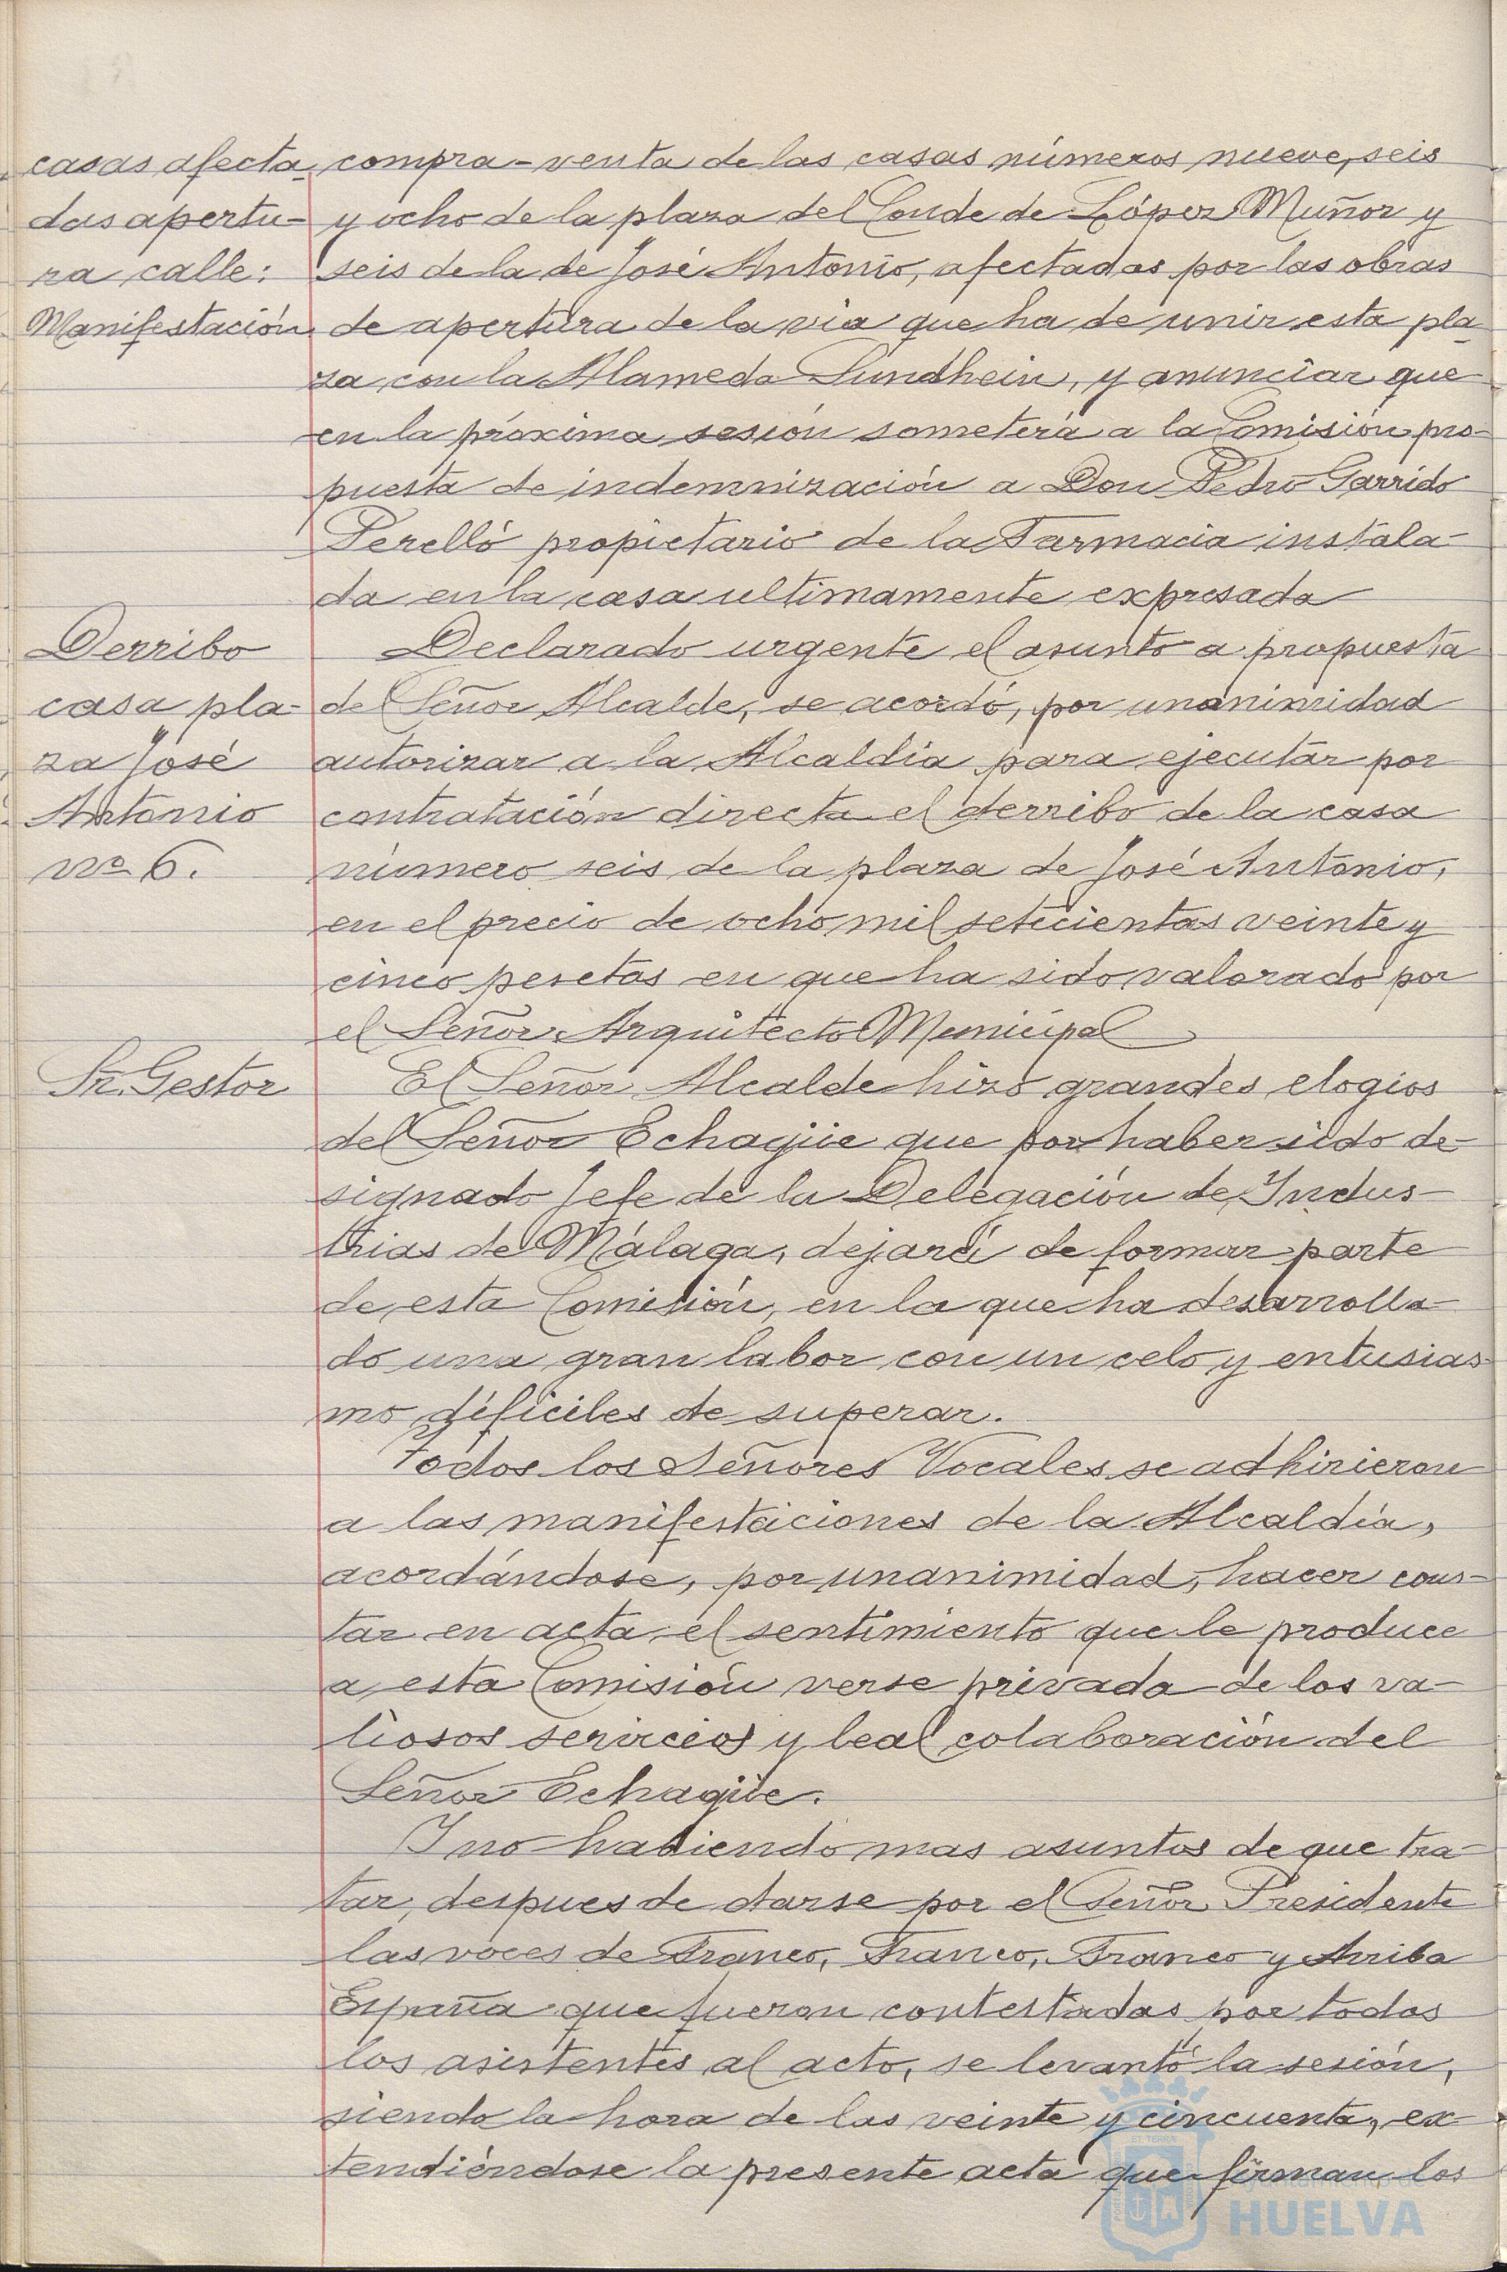 casas afecta-
das apertu-
ra calle:
Manifestación
compra-venta de las casas números nueve, seis
y ocho de la plaza del Conde de López Muñoz y
seis de la de José Antonio, afectadas por las obras
de apertura de la via que ha de unir esta pla-
za con la Alameda Sundhein, y anunciar que
en la próxima sesión someterá a la Comisión pro-
puesta de indemnización a Don Pedro Garrido
Perelló propietario de la Farmacia instala-
da en la casa ultimamente expresada
Derribo
casa pla-
za José
Antonio
nº 6.
Declarado urgente el asunto a propuesta
del Señor Alcalde, se acordó, por unanimidad
autorizar a la Alcaldía para ejecutar por
contratación directa el derribo de la casa
número seis de la plaza de José Antonio,
en el precio de ocho mil setecientas veinte y
cinco pesetas en que ha sido valorado por
el Señor Arquitecto Municipal
Sr. Gestor
El Señor Alcalde hizo grandes elogios
del Señor Echagüe que por haber sido de-
signado Jefe de la Delegación de Indus-
trias de Málaga, dejará de formar parte
de esta Comisión, en la que ha desarrolla-
do una gran labor con un celo y entusias-
mo dificiles de superar.
Todos los Señores Vocales se adhirieron
a las manifestaciones de la Alcaldía,
acordándose, por unanimidad, hacer cons-
tar en acta el sentimiento que le produce
a esta Comisión verse privada de los va-
liosos servicios y leal colaboración del
Señor Echagüe.
Y no habiendo mas asuntos de que tra-
tar, despues de darse por el Señor Presidente
las voces de Franco, Franco, Franco y Arriba
España que fueron contestadas por todos
los asistentes al acto, se levantó la sesión,
siendo la hora de las veinte y cincuenta, ex-
tendiéndose la presente acta que firman los
Ayuntamiento de
HUELVA